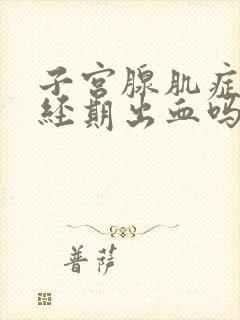 子宫腺肌症
经期出血吗
普萨